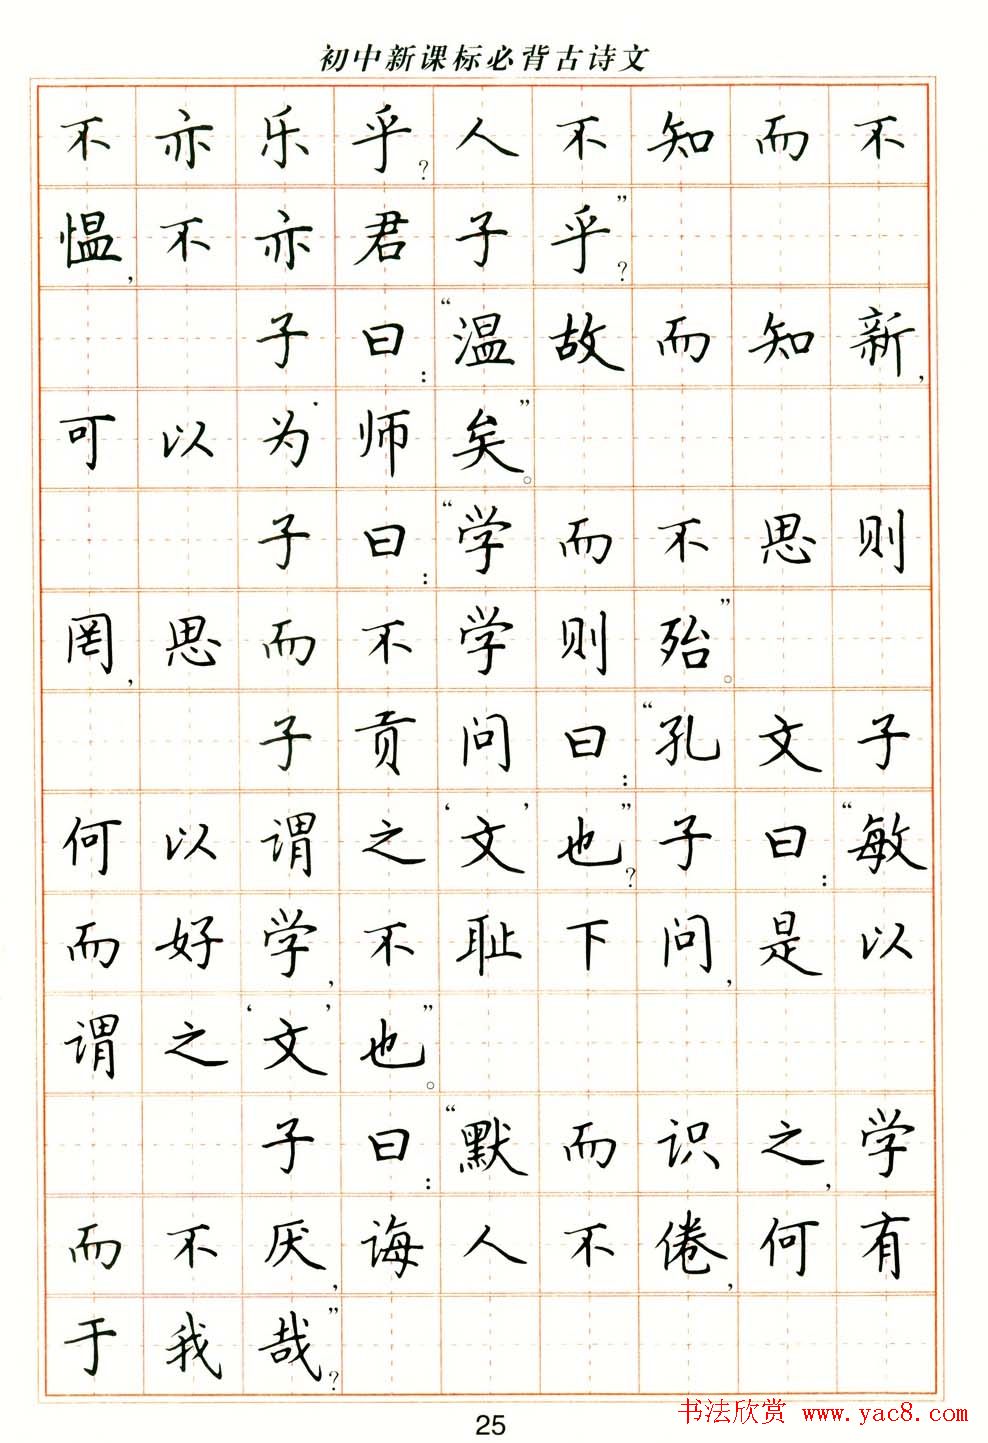 初中新课标必背古诗文
不亦乐乎？人不知而不
愠，不亦君子乎？”
子曰：“温故而知新，
可以为师矣。”
子曰：“学而不思则
罔，思而不学则殆。”
子贡问曰：“孔文子
何以谓之‘文’也？”子曰：“敏
而好学，不耻下问，是以
谓之‘文’也。”
子曰：“默而识之，学
而不厌，诲人不倦，何有
于我哉？”
25
书法欣赏 www.yac8.com